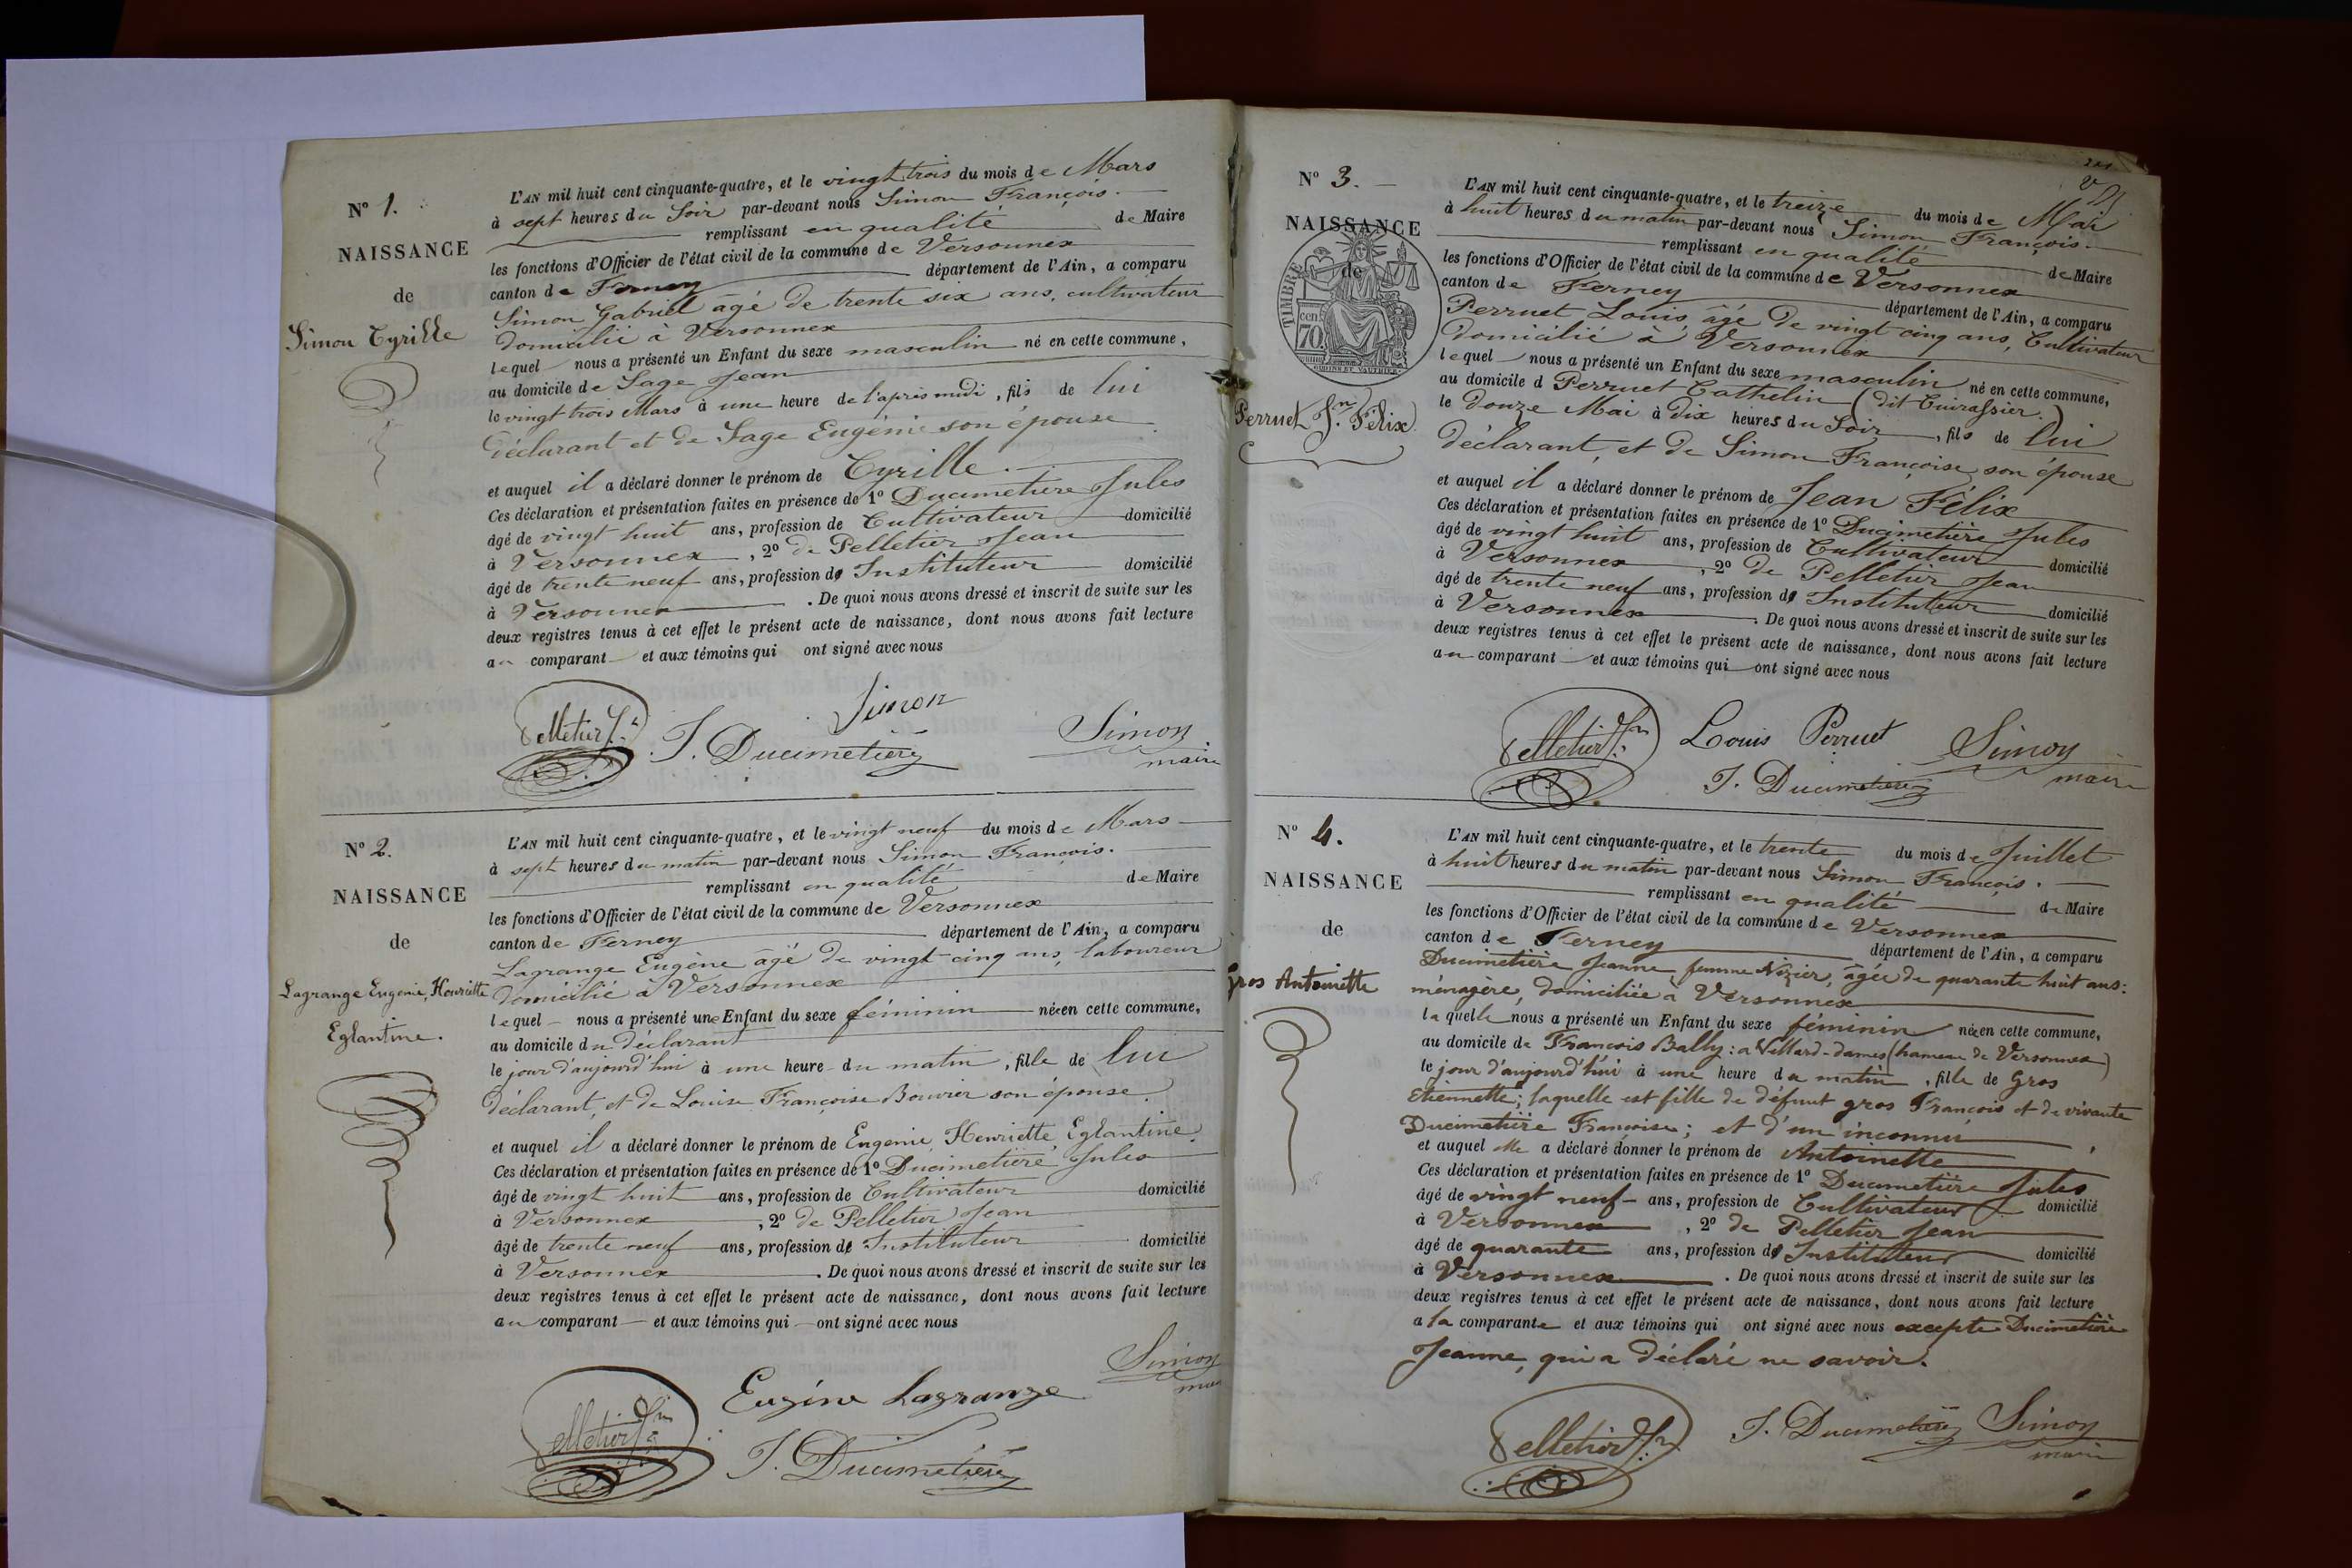 N° 1.
NAISSANCE
de
Simon Cyrille
L'AN mil huit cent cinquante-quatre, et le vingt trois du mois de Mars
à sept heures du Soir par-devant nous Simon François.
remplissant en qualité de Maire
les fonctions d'Officier de l'état civil de la commune de Versonnex
canton de Ferney département de l'Ain, a comparu
Simon Gabriel agé de trente six ans, cultivateur
domicilié à Versonnex
lequel nous a présenté un Enfant du sexe masculin né en cette commune,
au domicile de Sage Jean
le vingt trois Mars à une heure de l'après midi, fils de lui
déclarant et de Sage Eugénie son épouse
et auquel il a déclaré donner le prénom de Cyrille.
Ces déclaration et présentation faites en présence de 1° Ducimetière Jules
âgé de vingt huit ans, profession de Cultivateur domicilié
à Versonnex, 2° de Pelletier Jean
âgé de trente neuf ans, profession d' Instituteur domicilié
à Versonnex. De quoi nous avons dressé et inscrit de suite sur les
deux registres tenus à cet effet le présent acte de naissance, dont nous avons fait lecture
au comparant et aux témoins qui ont signé avec nous
Simon
Pelletier Jn J. Ducimetière Simon
maire
N° 2.
NAISSANCE
de
Lagrange Eugénie, Henriette
Eglantine.
L'AN mil huit cent cinquante-quatre, et le vingt neuf du mois de Mars
à sept heures du matin par-devant nous Simon François.
remplissant en qualité de Maire
les fonctions d'Officier de l'état civil de la commune de Versonnex
canton de Ferney département de l'Ain, a comparu
Lagrange Eugène âgé de vingt-cinq ans, laboureur
domicilié à Versonnex
lequel nous a présenté une Enfant du sexe féminin née en cette commune,
au domicile du déclarant
le jour d'aujourd'hui à une heure du matin, fille de lui
déclarant, et de Louise Françoise Bouvier son épouse.
et auquel il a déclaré donner le prénom de Eugénie Henriette Eglantine.
Ces déclaration et présentation faites en présence de 1° Ducimetière Jules
âgé de vingt huit ans, profession de Cultivateur domicilié
à Versonnex, 2° de Pelletier Jean
âgé de trente neuf ans, profession d' Instituteur domicilié
à Versonnex. De quoi nous avons dressé et inscrit de suite sur les
deux registres tenus à cet effet le présent acte de naissance, dont nous avons fait lecture
au comparant et aux témoins qui ont signé avec nous
Simon
Eugène Lagrange
Pelletier Jn
J. Ducimetière
N° 3.
NAISSANCE
de
TIMBRE
70.
Perruet Jn. Félix
L'AN mil huit cent cinquante-quatre, et le treize du mois de Mai
à huit heures du matin par-devant nous Simon François.
remplissant en qualité de Maire
les fonctions d'Officier de l'état civil de la commune de Versonnex
canton de Ferney département de l'Ain, a comparu
Perruet Louis, âgé de vingt cinq ans, Cultivateur
domicilié à Versonnex
lequel nous a présenté un Enfant du sexe masculin né en cette commune,
au domicile d Perruet Cathelin (dit Cuirassier.)
le Douze Mai à dix heures du Soir, fils de lui
déclarant, et de Simon Françoise son épouse
et auquel il a déclaré donner le prénom de Jean Félix
Ces déclaration et présentation faites en présence de 1° Ducimetière Jules
âgé de vingt huit ans, profession de Cultivateur domicilié
à Versonnex, 2° de Pelletier Jean
âgé de trente neuf ans, profession d' Instituteur domicilié
à Versonnex. De quoi nous avons dressé et inscrit de suite sur les
deux registres tenus à cet effet le présent acte de naissance, dont nous avons fait lecture
au comparant et aux témoins qui ont signé avec nous
Pelletier Jn Louis Perruet Simon
J. Ducimetière maire
N° 4.
NAISSANCE
de
Gros Antoinette
L'AN mil huit cent cinquante-quatre, et le trente du mois de Juillet
à huit heures du matin par-devant nous Simon François.
remplissant en qualité de Maire
les fonctions d'Officier de l'état civil de la commune de Versonnex
canton de Ferney département de l'Ain, a comparu
Ducimetière Jeanne femme Nizier, âgée de quarante huit ans:
ménagère, domiciliée à Versonnex
laquelle nous a présenté un Enfant du sexe féminin née en cette commune,
au domicile de François Bally: à Villard-dames (hameau de Versonnex)
le jour d'aujourd'hui à une heure du matin, fille de Gros
Etiennette; laquelle est fille de défunt gros François et de vivante
Ducimetière Françoise; et d'un inconnu
et auquel elle a déclaré donner le prénom de Antoinette
Ces déclaration et présentation faites en présence de 1° Ducimetière Jules
âgé de vingt neuf ans, profession de Cultivateur domicilié
à Versonnex, 2° de Pelletier Jean
âgé de quarante ans, profession d' Instituteur domicilié
à Versonnex. De quoi nous avons dressé et inscrit de suite sur les
deux registres tenus à cet effet le présent acte de naissance, dont nous avons fait lecture
a la comparante et aux témoins qui ont signé avec nous excepté Ducimetière
Jeanne, qui a déclaré ne savoir.
Pelletier Jn J. Ducimetière Simon
maire